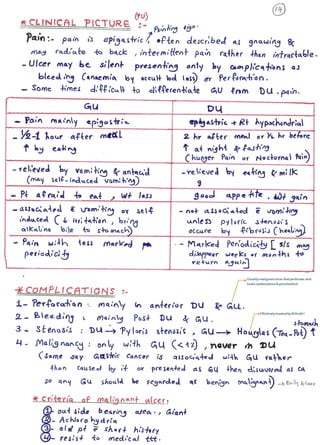 14
(PU)
* CLINICAL PICTURE :-
Pointing sign
Pain :- pain is epigastric, often described as gnawing &
may radiate to back, intermittent pain rather than intractable.
- Ulcer may be silent presenting only by complications as
bleeding (anaemia by occult bld loss) or Perforation.
- Some times difficult to differentiate GU from DU pain.
GU
DU
- Pain mainly epigastric
epigastric + Rt hypochondrial
- ½-1 hour after meal
↑ by eating
2 hr after meal or ½ hr before
↑ at night & fasting
(hunger Pain or Nocturnal Pain)
- relieved by vomiting & antacid
(may self-induced vomiting)
- relieved by eating & milk
- Pt afraid to eat, Wt loss
good appetite, Wt gain
- associated c̄ vomiting or self
induced (↓ irritation, bring
alkaline bile to stomach)
- not associated c̄ vomiting
unless pyloric stenosis
occure by fibrosis (healing)
- Pain with less marked
periodicity
- Marked Periodicity [ s/s may
disappear weeks or months to
return again]
* COMPLICATIONS :-
1- Perforation : mainly in anterior DU & GU.
2- Bleeding : mainly Post DU & GU.
3- Stenosis : DU → Pyloric stenosis, GU → Hourglass (Tea-Pot)
stomach
4- Malignancy : only with GU (<1%), never in DU
(some say Gastric cancer is associated with GU rather
than caused by it or presented as GU then discovered as CA
so any GU should be regarded as benign malignant)
* Criteria of malignant ulcer:
① out side bearing area., Giant
② Achlorohydria
③ old pt c̄ short history
④ resist to medical ttt.